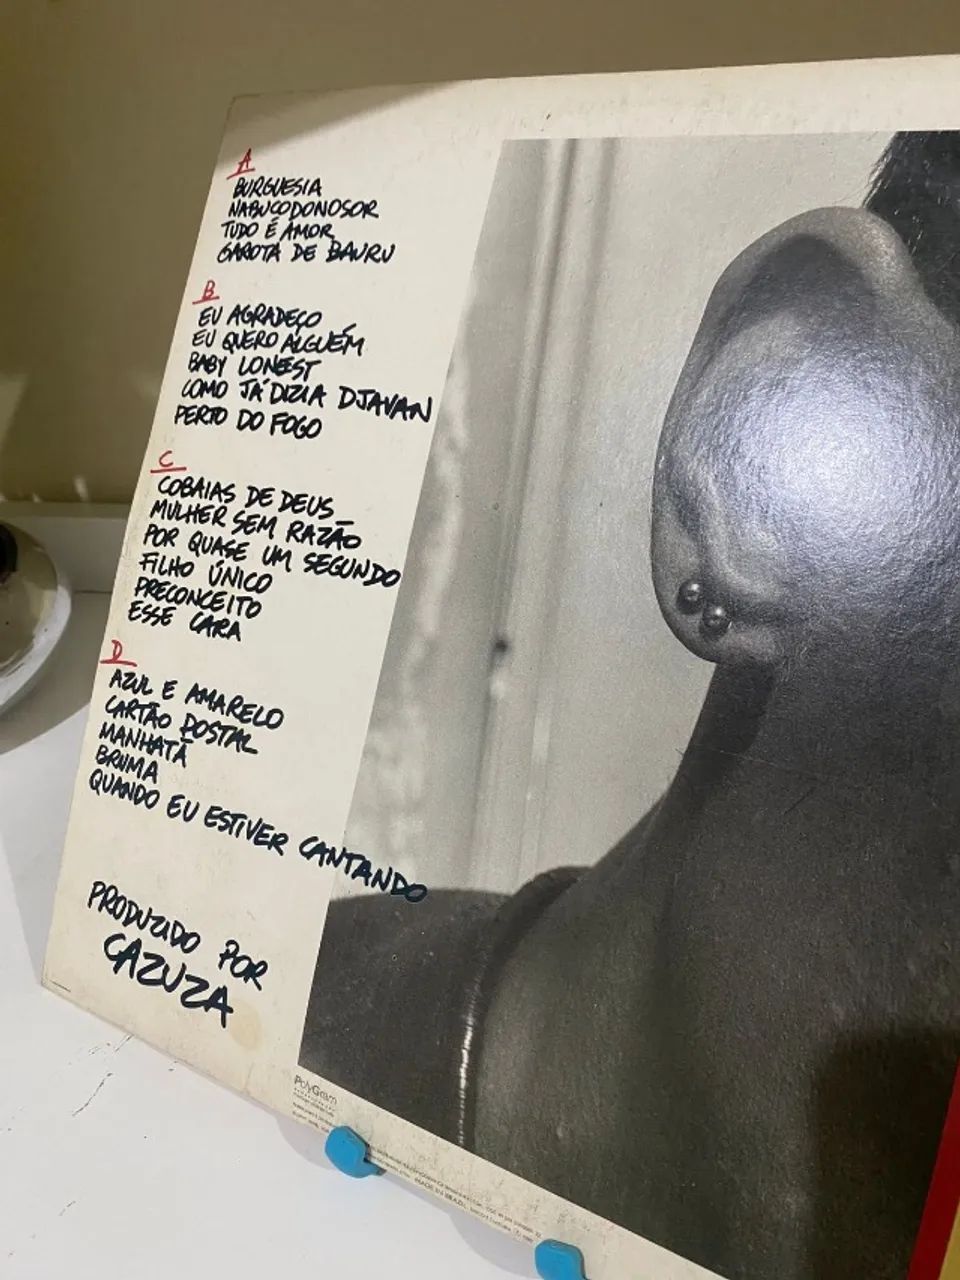 A
BURGUESIA
NABUCODONOSOR
TUDO É AMOR
GAROTA DE BAURU
B
EU AGRADEÇO
EU QUERO ALGUÉM
BABY LONEST
COMO JÁ DIZIA DJAVAN
PERTO DO FOGO
C
COBAIAS DE DEUS
MULHER SEM RAZÃO
POR QUASE UM SEGUNDO
FILHO ÚNICO
PRECONCEITO
ESSE CARA
D
AZUL E AMARELO
CARTÃO POSTAL
MANHATÃ
BRUMA
QUANDO EU ESTIVER CANTANDO
PRODUZIDO POR
CAZUZA
PolyGram
MADE IN BRAZIL